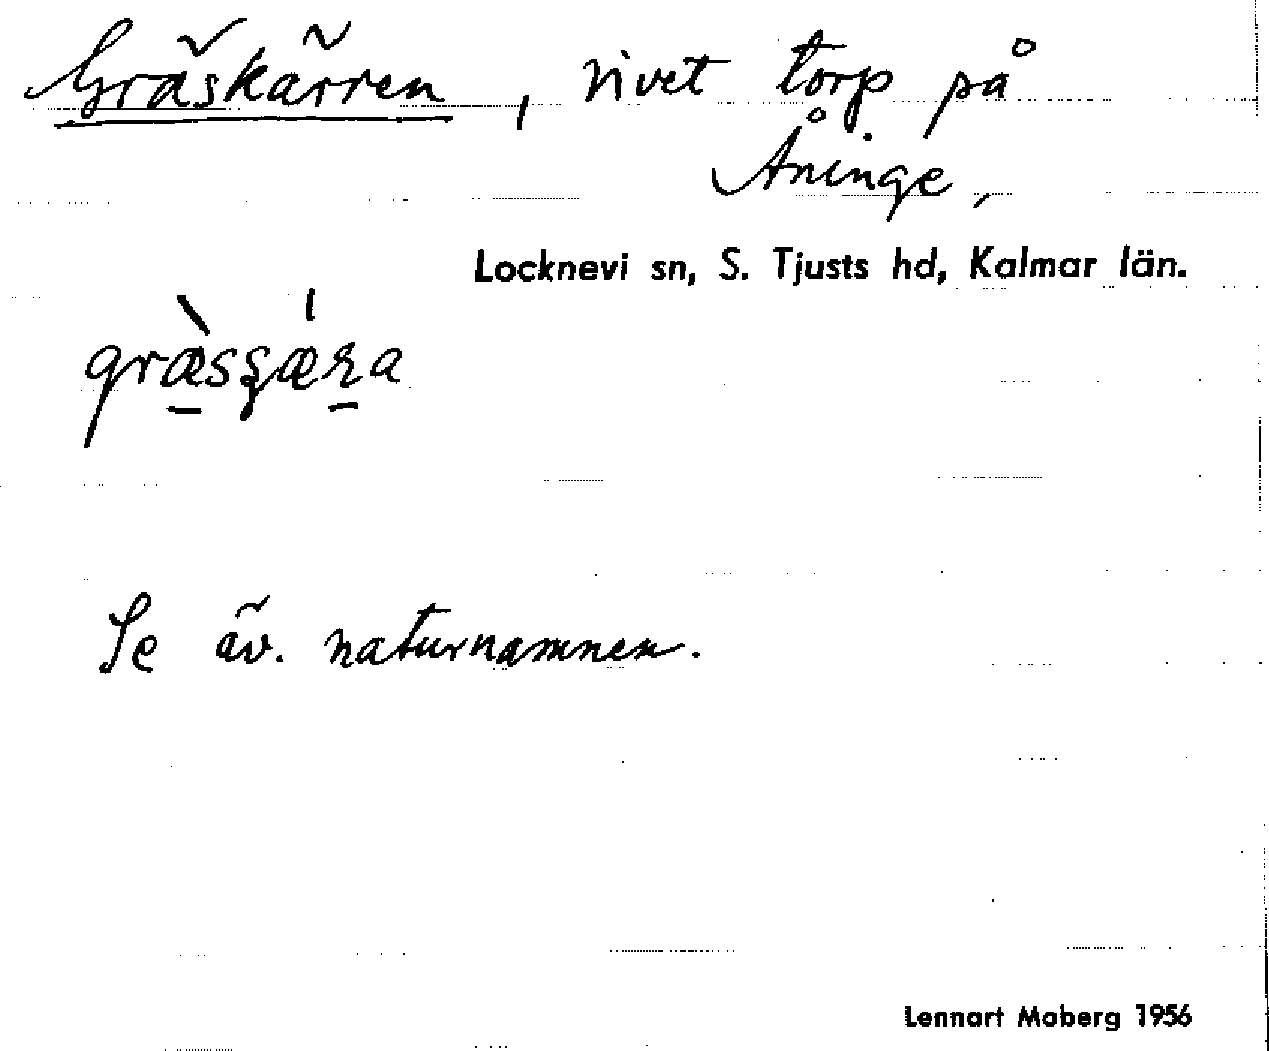 Gräskärren, rivet torp på
Åninge,
Locknevi sn, S. Tjusts hd, Kalmar län.
Se äv. naturnamnen.
Lennart Moberg 1956